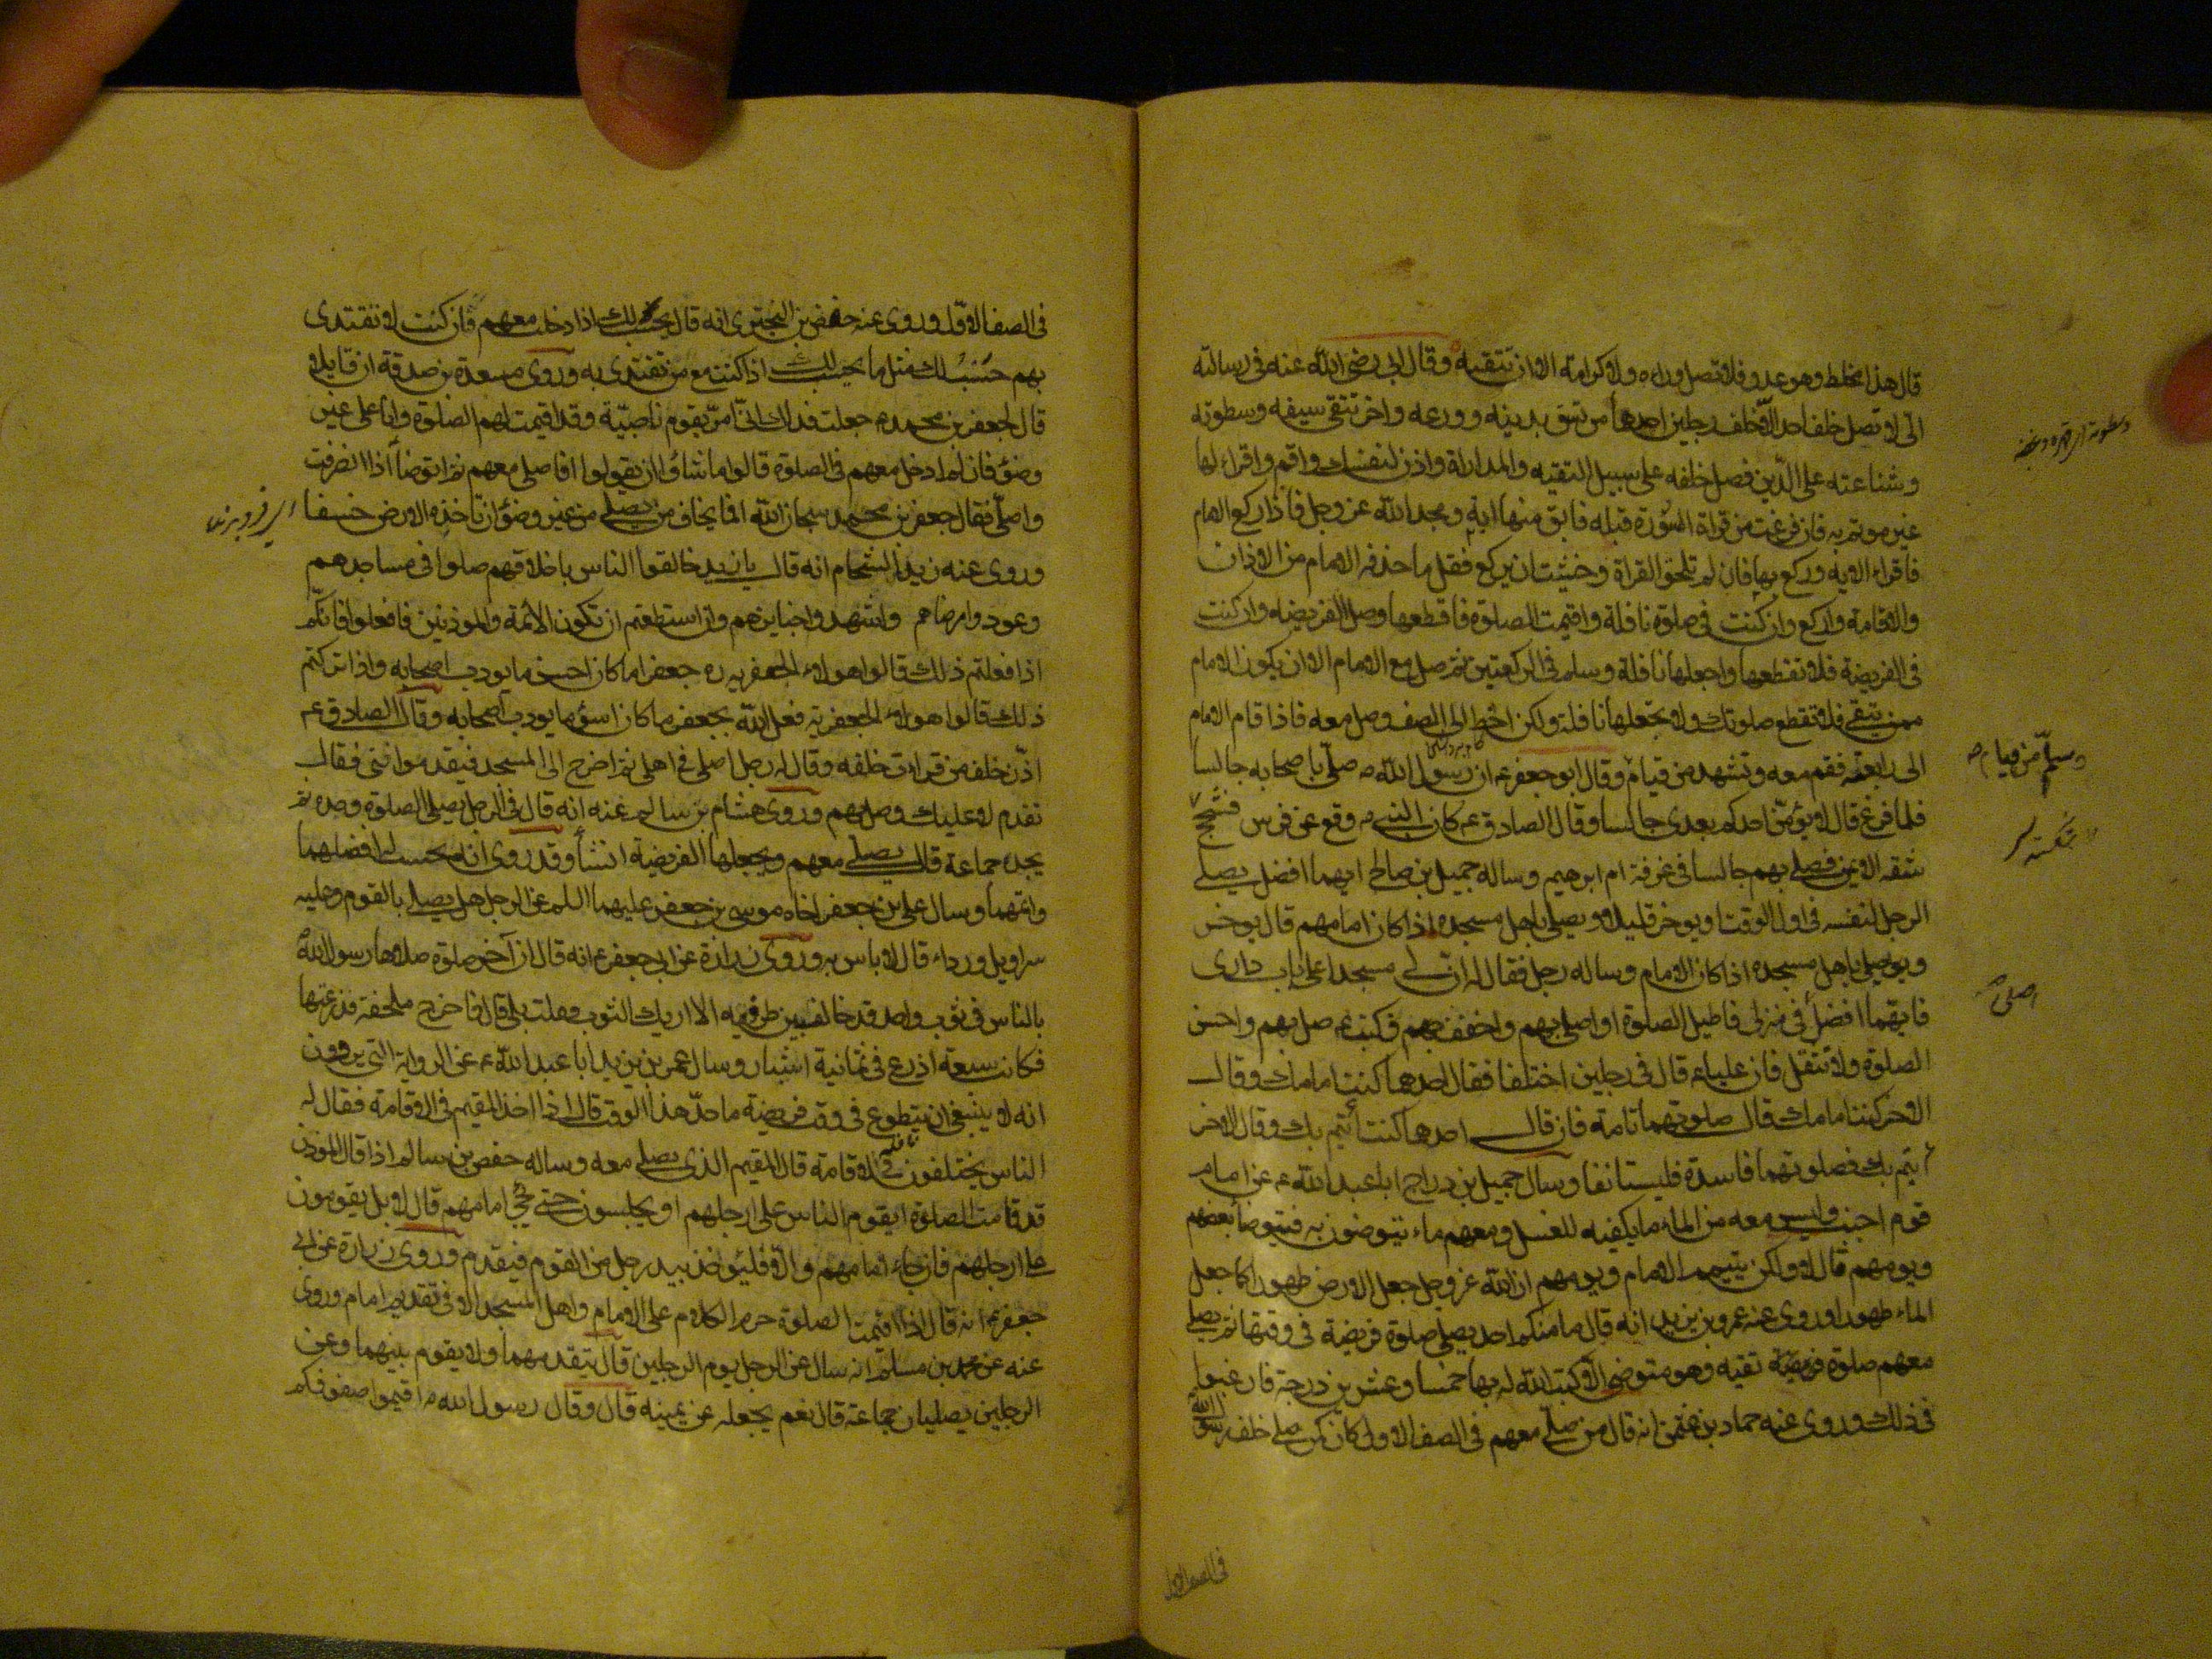 قال هذا مخلط وهو عدو فلا تصل وراءه ولا كرامة الا ان تتقيه وقال ابي رضي الله عنه في رسالته
الى لا تصل خلف احد الا خلف رجلين احدهما من تثق بدينه وورعه واخر تتقي سيفه وسطوته
وشناعته على الدين فصل خلفه على سبيل التقيه والمداراة واذن لنفسك واقم واقراء لها
غير موتم به فان فرغت من قراة السورة قبله فابق منها اية ومجد الله عز وجل فاذا ركع الامام
فاقراء الايه وركع بها فان لم تلحق القراة وخشيت ان يركع فقل ما حذفه الامام من الاذان
والاقامة واركع وان كنت في صلوة نافلة واقيمت الصلوة فاقطعها وصل الفريضه وان كنت
في الفريضة فلا تقطعها واجعلها نافلة وسلم في الركعتين ثم صل مع الامام الا ان يكون الامام
ممن يتقي فلا تقطع صلوتك ولا تجعلها نافلة ولكن اخط الى الصف وصل معه فاذا قام الامام
الى رابعته فقم معه وتشهد من قيام وقال ابو جعفر ع ان رسول الله ص صلى باصحابه جالسا
فلما فرغ قال لا يؤمن احدكم بعدي جالسا وقال الصادق ع كان النبي ص وقع عن فرس فشحج
شقه الايمن فصلى بهم جالسا في غرفة ام ابرهيم وساله جميل بن صالح ايهما افضل يصلي
الرجل لنفسه في اول الوقت او يوخر قليلا ويصلي باهل مسجده اذا كان امامهم قال يوخر
ويصلي باهل مسجده اذا كان الامام وساله رجل فقال له ان لي مسجدا على باب داري
فايهما افضل في منزلي فاطيل الصلوة او اصلي بهم واخفف بهم فكتب ع صل بهم واحسن
الصلوة ولا تثقل فان عليا ع قال في رجلين اختلفا فقال احدهما كنت امامك وقال
الاخر كنت امامك قال صلوتهما تامة فان قال احدهما كنت أئتم بك وقال الاخر
ائتم بك فصلوتهما فاسدة فليستانفا وسال جميل بن دراج ابا عبد الله ع عن امام
قوم اجنب وليس معه من الماء ما يكفيه للغسل ومعهم ماء يتوضون به فيتوضا بعضهم
ويومهم قال لا ولكن يتيمم الامام ويومهم ان الله عز وجل جعل الارض طهورا كما جعل
الماء طهورا وروى عنه عمر بن يزيد انه قال ما منكم احد يصلي صلوة فريضة في وقتها ثم يصلي
معهم صلوة فريضة تقيه وهو متوضي الا كتب الله له بها خمسا وعشرين درجة فارغبوا
في ذلك وروى عنه حماد بن عثمن انه قال من صلى معهم في الصف الاول كان كمن صلى خلف رسول الله
وسلم من قيام ص
اصلي ص
في الصف الاول
في الصف الاول وروى عنه حفص بن البختري انه قال يحسب لك اذا دخلت معهم فان كنت لا تقتدي
بهم حسب لك مثل ما يحسب لك اذا كنت مع من تقتدي به وروى مسعدة بن صدقة ان قايلا
قال لجعفر بن محمد ع جعلت فداك اني امر بقوم ناصبية وقد اقيمت لهم الصلوة وانا على غير
وضوء فان لم ادخل معهم في الصلوة قالوا ما شاؤا ان يقولوا افاصلي معهم ثم اتوضأ اذا انصرفت
واصلي فقال جعفر بن محمد سبحان الله افما يخاف من يصلي من غير وضوء ان تاخذه الارض خسفا
وروى عنه زيد الشحام انه قال يا زيد خالقوا الناس باخلاقهم صلوا في مساجدهم
وعودوا مرضاهم واشهدوا جنايزهم وان استطعتم ان تكون الائمة والموذنين فافعلوا فانكم
اذا فعلتم ذلك قالوا هولاء الجعفريه ره جعفرا ما كان احسن ما يودب اصحابه واذا تركتم
ذلك قالوا هولاء الجعفرية فعل الله بجعفر ما كان اسؤ ما يودب اصحابه وقال الصادق ع
اذن خلف من قرات خلفه وقال له رجل اصلي في اهلي ثم اخرج الى المسجد فيقدموانني فقال
تقدم لا عليك وصل بهم وروى هشام بن سالم عنه انه قال في الرجل يصلي الصلوة وحده ثم
يجد جماعة قال يصلي معهم ويجعلها الفريضة ان شأ وقد روى انه يحسب له افضلهما
واتمهما وسال علي بن جعفر اخاه موسى بن جعفر عليهما السلم عن الرجل هل يصلي بالقوم وعليه
سراويل ورداء قال لا باس به وروى زرارة عن ابي جعفر ع انه قال ان آخر صلوة صلاها رسول الله
بالناس في ثوب واحد قد خالف بين طرفيه الا اريك الثوب فقلت بلى قال فاخرج ملحفة فذرعتها
فكانت سبعة اذرع في ثمانية اشبار وسال عمر بن يزيد ابا عبد الله ع عن الرواية التي يروون
انه لا ينبغي ان يتطوع في وقت فريضة ما حد هذا الوقت قال اذا اخذ المقيم في الاقامة فقال له
الناس يختلفون في الاقامة قال المقيم الذي يصلي معه وساله حفص بن سالم اذا قال الموذن
قد قامت الصلوة ايقوم الناس على ارجلهم او يجلسون حتى يجي امامهم قال لا بل يقومون
على ارجلهم فان جاء امامهم والا فليؤخذ بيد رجل من القوم فيقدم وروى زرارة عن ابي
جعفر ع انه قال اذا اقيمت الصلوة حرم الكلام على الامام واهل المسجد الا في تقديم امام وروى
عنه عن محمد بن مسلم انه سال عن الرجل يوم الرجلين قال يتقدمهما ولا يقوم بينهما وعن
الرجلين يصليان جماعة قال نعم يجعله عن يمينه قال وقال رسول الله ص اقيموا صفوفكم